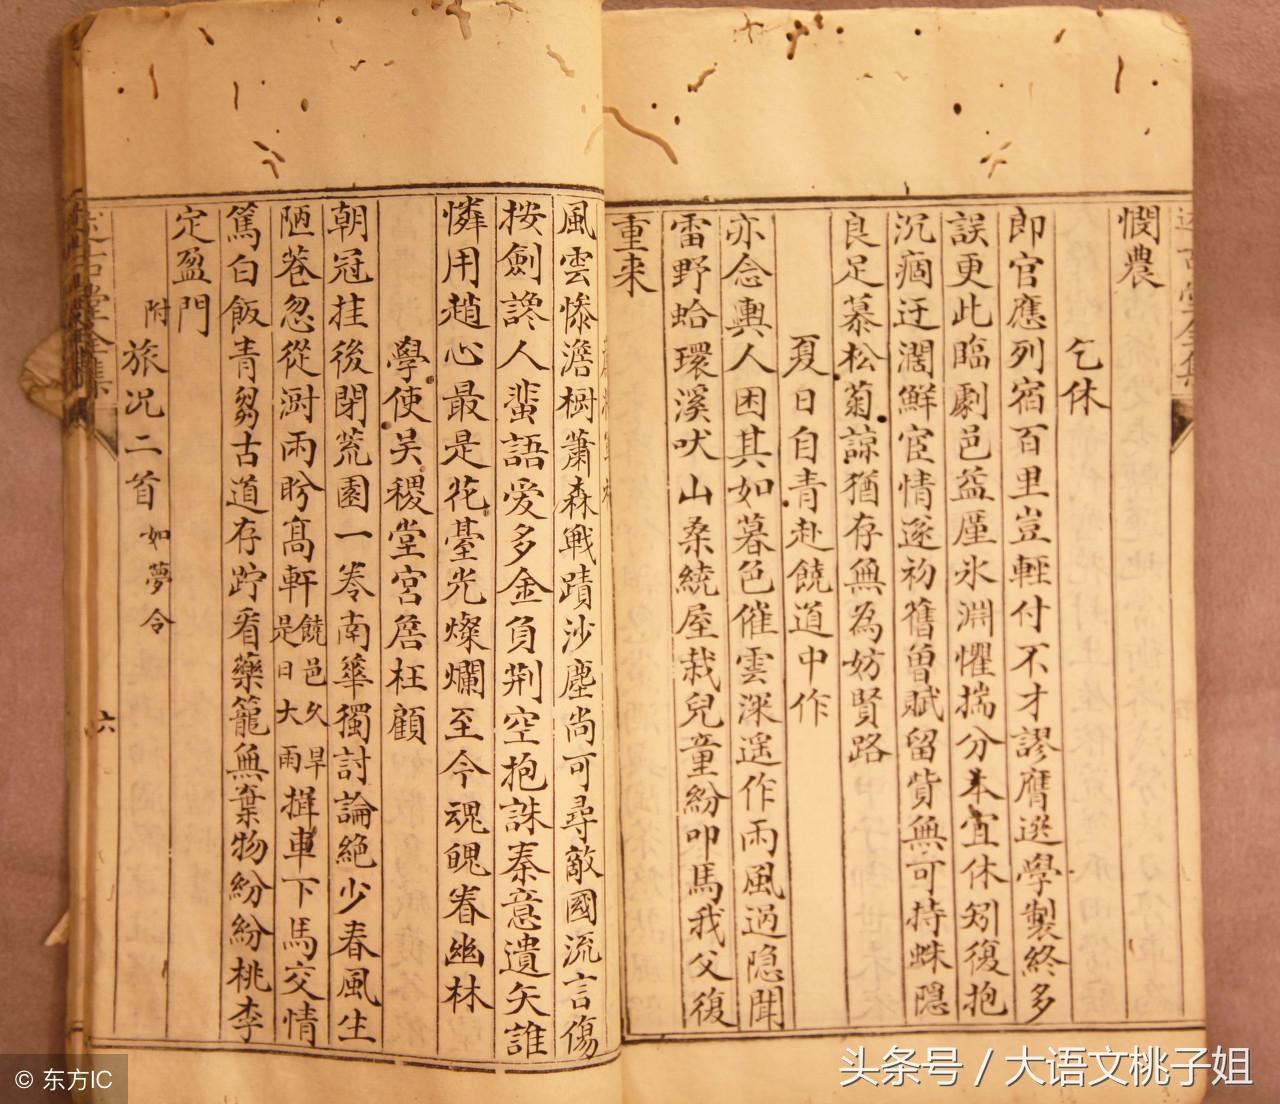 憫農
乞休
即官應列宿百里豈輕付不才謬膺選學製終多
誤更此臨劇邑益厪氷淵懼揣分本宜休矧復抱
沉痼迂濶鮮宦情遂初舊曾賦留貲無可持蛛隠
良足慕松菊諒猶存無為妨賢路
夏日自青赴饒道中作
亦念輿人困其如暮色催雲深遥作雨風過隐聞
雷野蛤環溪吠山桑繞屋栽兒童紛叩馬我父復
重来
風雲慘澹樹蕭森戰蹟沙塵尚可尋敵國流言傷
按劍讒人蜚語愛多金負荆空抱誅秦意遺矢誰
憐用趙心最是花臺光燦爛至今魂魄眷幽林
學使吴稷堂宮詹枉顧
朝冠挂後閉荒園一卷南華獨討論絶少春風生
陋巷忽從澍雨盻髙軒饒邑久旱是日大雨揖車下馬交情
篤白飯青芻古道存跱看藥籠無棄物紛紛桃李
定盈門
附
旅况二首如夢令
六
头条号 / 大语文桃子姐
© 东方IC